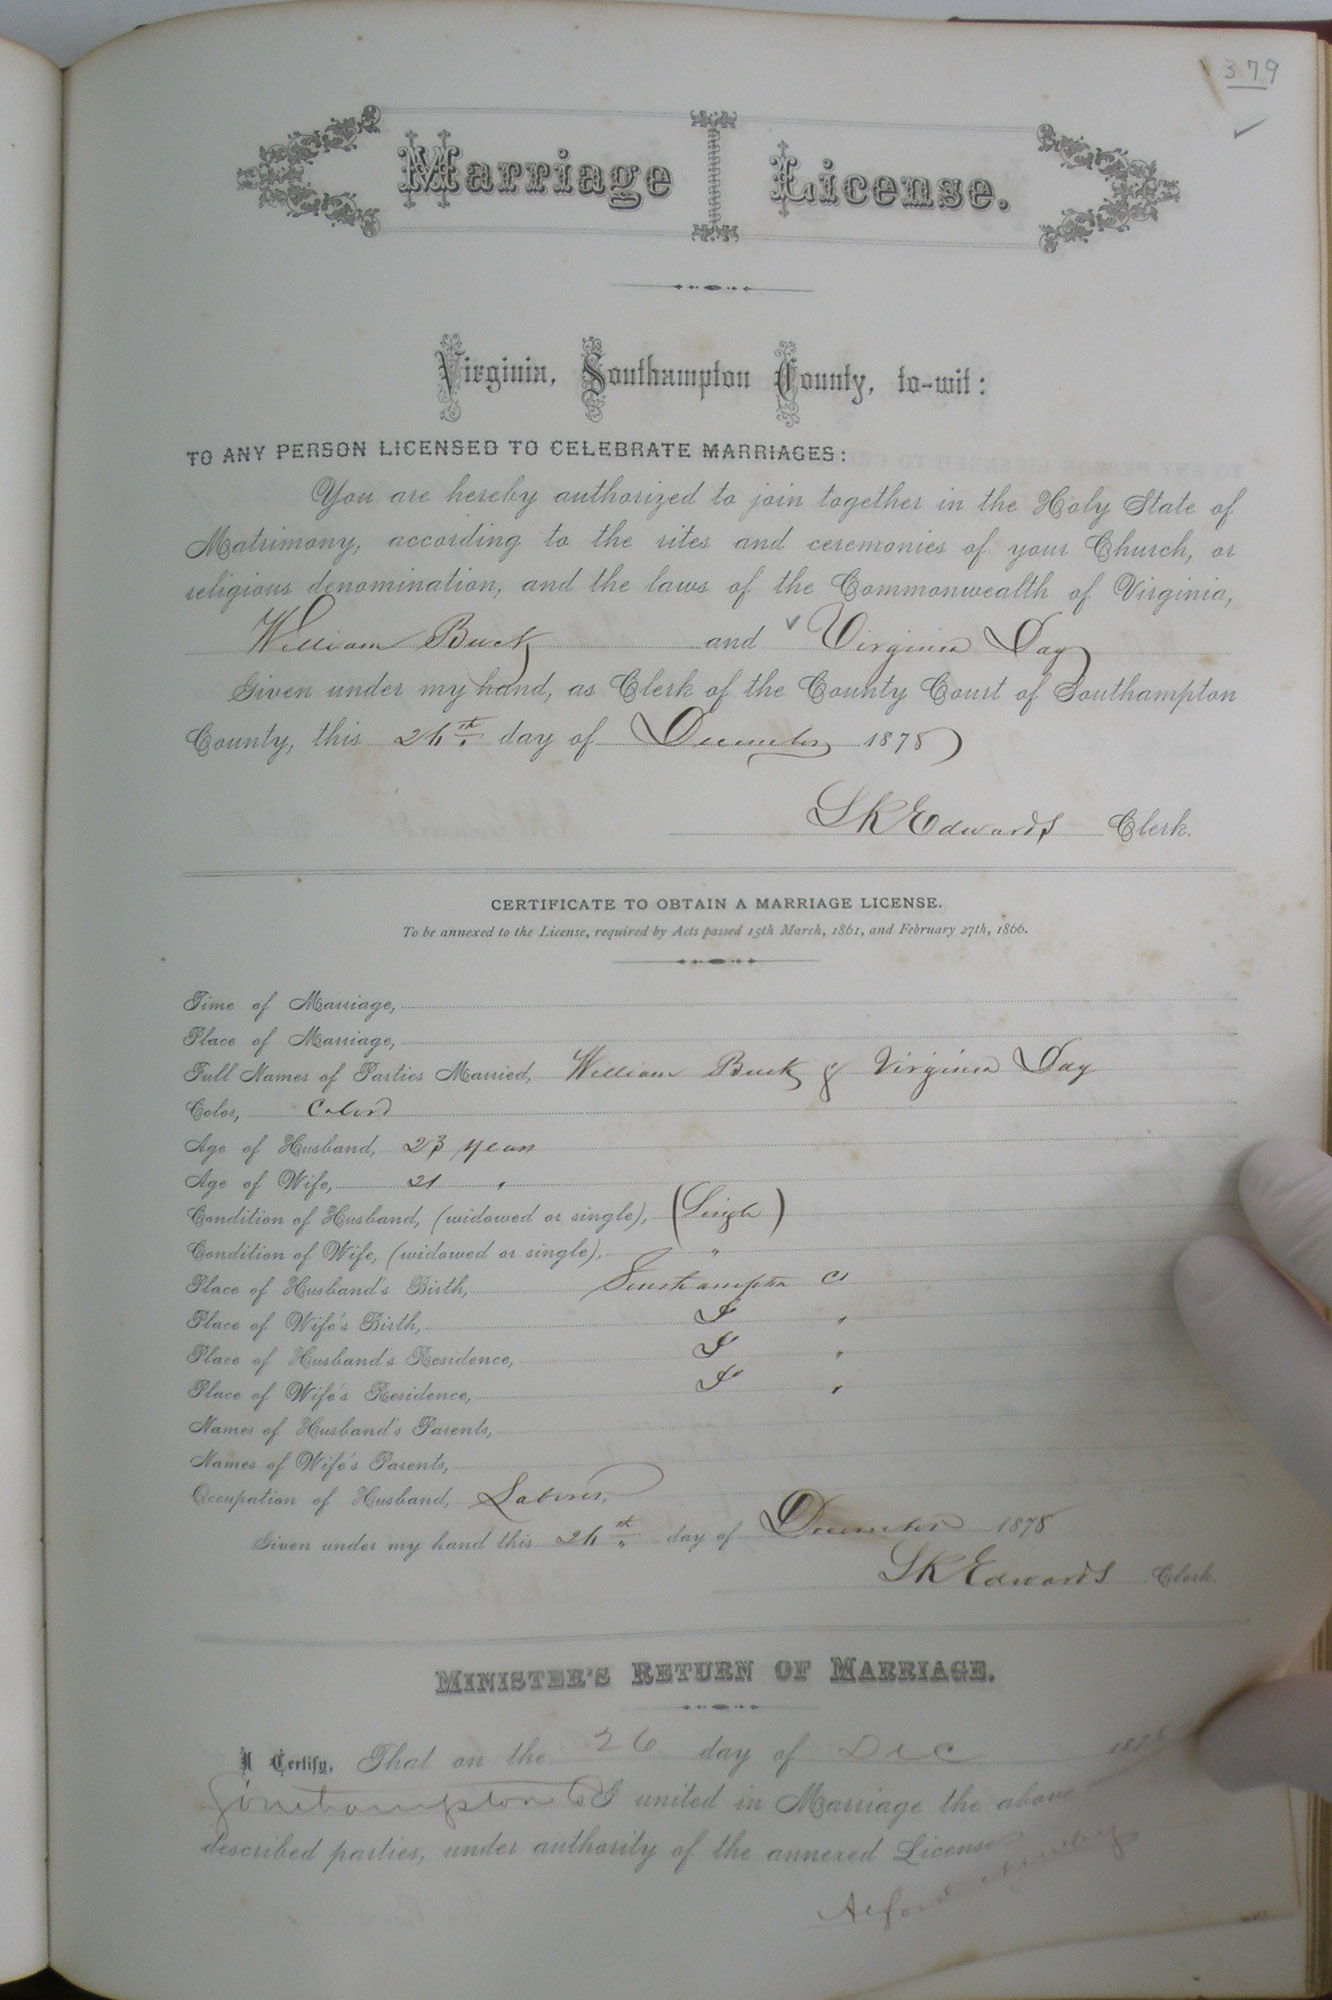 379
Marriage License.
Virginia, Southampton County, to-wit:
TO ANY PERSON LICENSED TO CELEBRATE MARRIAGES:
You are hereby authorized to join together in the Holy State of
Matrimony, according to the rites and ceremonies of your Church, or
religious denomination, and the laws of the Commonwealth of Virginia,
William Buck and Virginia Day
Given under my hand, as Clerk of the County Court of Southampton
County, this 26th day of December 1878
L R Edwards Clerk.
CERTIFICATE TO OBTAIN A MARRIAGE LICENSE.
To be annexed to the License, required by Acts passed 15th March, 1861, and February 27th, 1866.
Time of Marriage,
Place of Marriage,
Full Names of Parties Married, William Buck & Virginia Day
Color, Colord
Age of Husband, 23 years
Age of Wife, 21 "
Condition of Husband, (widowed or single), (Single)
Condition of Wife, (widowed or single), "
Place of Husband's Birth, Southampton Co
Place of Wife's Birth, "
Place of Husband's Residence, "
Place of Wife's Residence, "
Names of Husband's Parents,
Names of Wife's Parents,
Occupation of Husband, Laborer,
Given under my hand this 26th day of December 1878
L R Edwards Clerk.
MINISTER'S RETURN OF MARRIAGE.
I Certify, That on the 26 day of Dec 1878
Southampton Co I united in Marriage the above
described parties, under authority of the annexed License